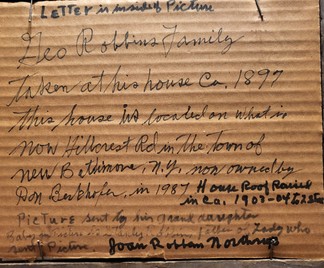 Letter is inside of Picture
Geo Robbins Family
Taken at his house Ca. 1897
This house is located on what is
now Hillcrest Rd in the Town of
new Balthimore, N.Y., now owned by
Don Berkhofer, in 1987 House Roof Raised
in Ca. 1903-04
Picture sent to his grand daughter
Lady who
Picture.
Joan Robban Northrup